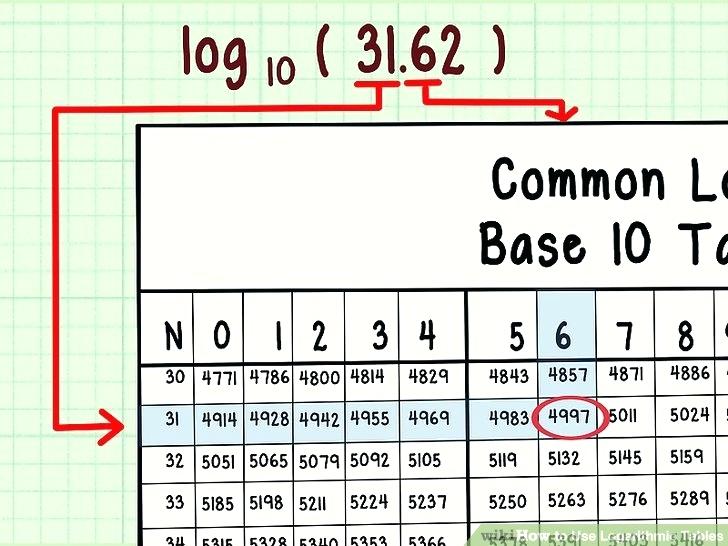 log 10 ( 31.62 )
Common
Base 10
N 0 1 2 3 4 5 6 7 8
30 4771 4786 4800 4814 4829 4843 4857 4871 4886
31 4914 4928 4942 4955 4969 4983 4997 5011 5024
32 5051 5065 5079 5092 5105 5119 5132 5145 5159
33 5185 5198 5211 5224 5237 5250 5263 5276 5289
34 5315 5328 5340 5353 5366 5378 5391
wikiHow to Use Logarithmic Tables